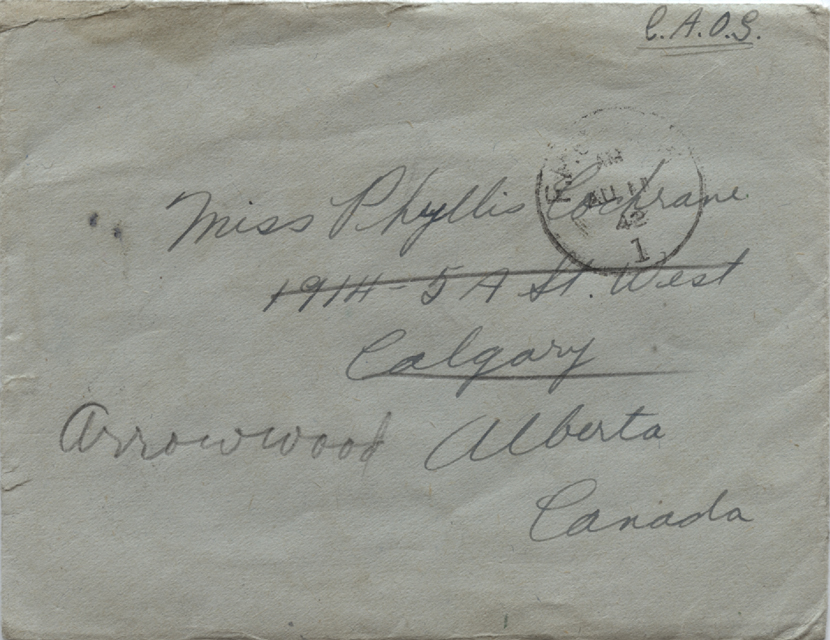 C.A.O.S.
AM
42
1
Miss Phyllis Cochrane
1914 - 5 A St. West
Calgary
Arrowwood Alberta
Canada